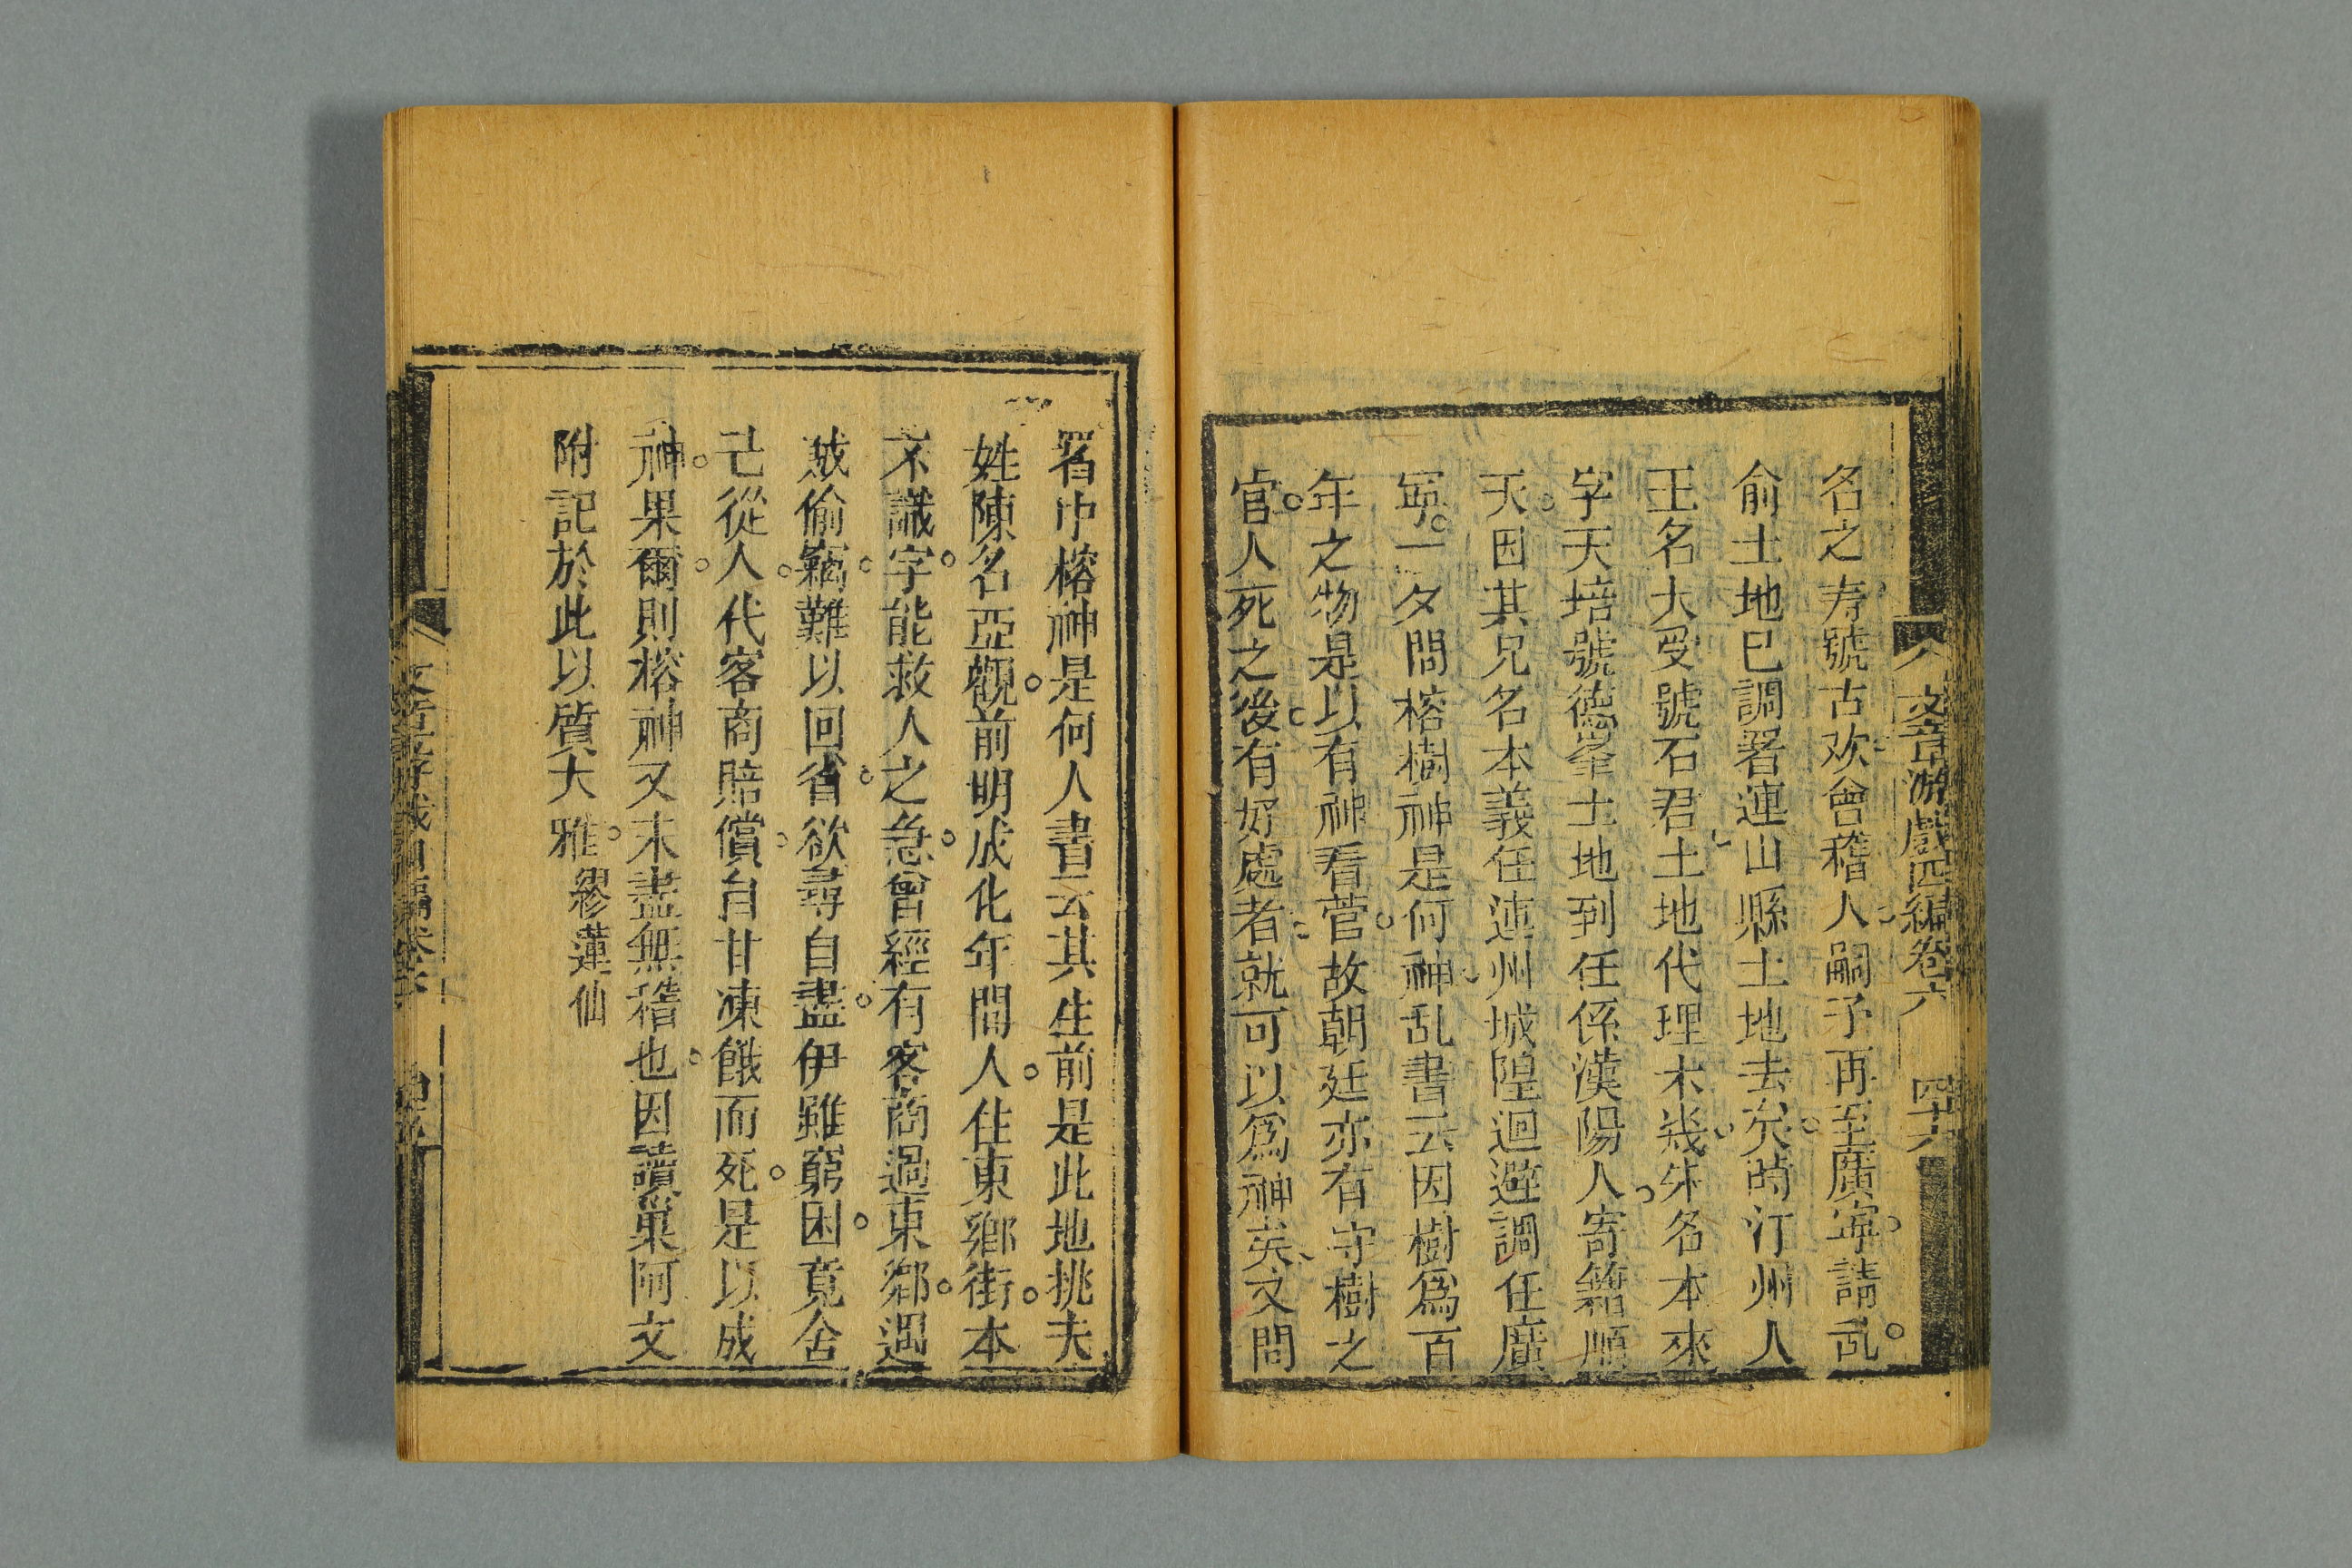 文章游戲四編卷六 四十六
名之寿號古欢會稽人嗣予再至廣寧請乩
俞土地巳調署連山縣土地去矣時汀州人
王名大受號石君土地代理未幾朱名本來
字天培號德峯土地到任係漢陽人寄籍順
天因其兄名本義任連州城隍迴避調任廣
寧一夕問榕樹神是何神乩書云因樹爲百
年之物是以有神看菅故朝廷亦有守樹之
官人死之後有好處者就可以爲神矣又問
署中榕神是何人書云其生前是此地挑夫
姓陳名亞觀前明成化年間人住東鄉街本
不識字能救人之急曾經有客商過東鄉遇
賊偷竊難以回省欲尋自盡伊雖窮困竟舍
己從人代客商賠償自甘凍餓而死是以成
神果爾則榕神又未盡無稽也因讀巢阿文
附記於此以質大雅 繆蓮仙